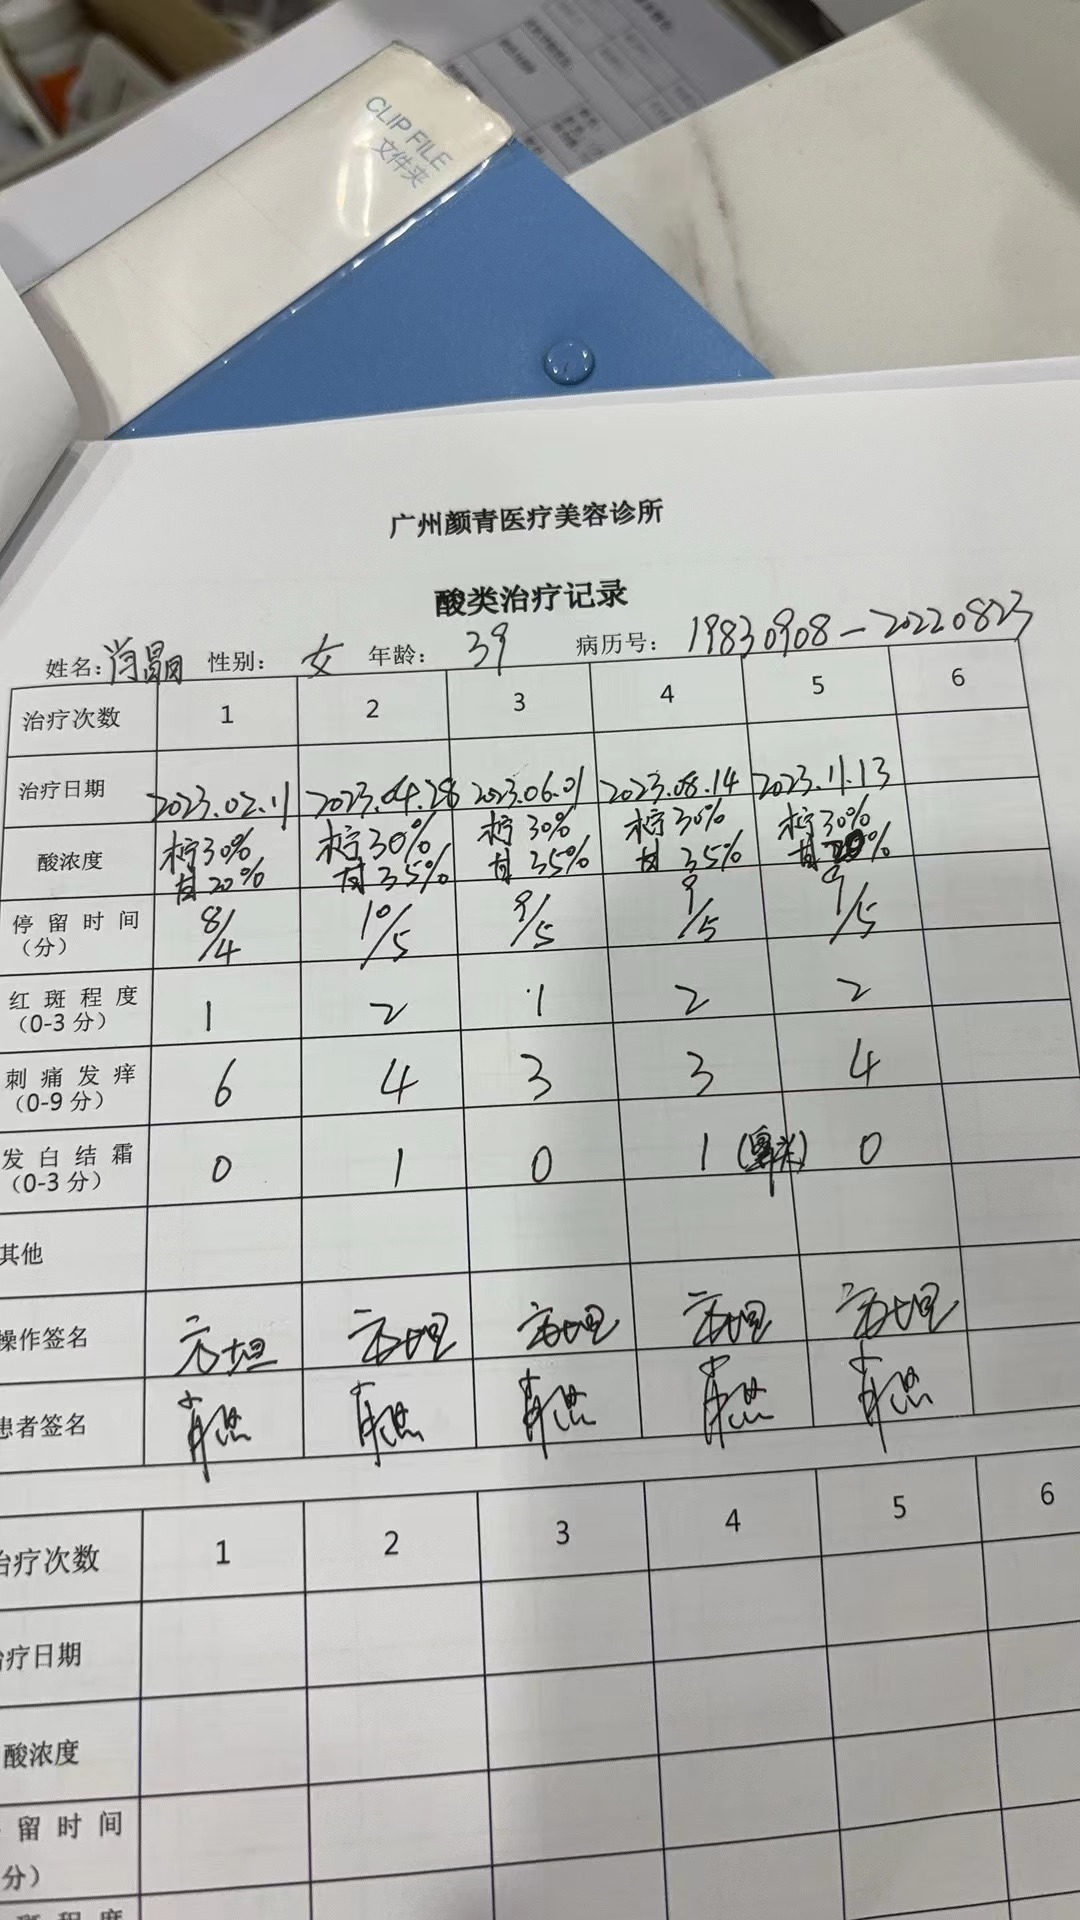 CLIP FILE
文件夹
广州颜青医疗美容诊所
酸类治疗记录
姓名: 性别: 女 年龄: 39 病历号: 19830908-20220823
治疗次数 1 2 3 4 5 6
治疗日期 2023.02.11 2023.04.28 2023.06.01 2023.08.14 2023.11.13
酸浓度 柠30% 柠30% 柠30% 柠30% 柠30%
甘20% 甘35% 甘35% 甘35% 甘 %
停留时间(分) 8/4 10/5 9/5 9/5 9/5
红斑程度(0-3分) 1 2 1 2 2
刺痛发痒(0-9分) 6 4 3 3 4
发白结霜(0-3分) 0 1 0 1 0
其他
操作签名
患者签名
治疗次数 1 2 3 4 5 6
治疗日期
酸浓度
留时间
分)
斑程度